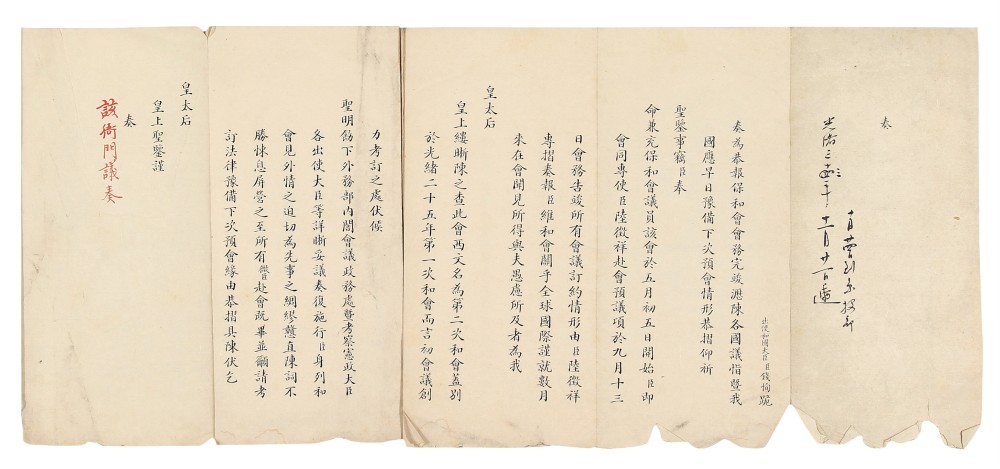 奏
出使和國大臣臣錢恂跪
奏為恭報保和會會務完竣瀝陳各國議恉暨我
國應早日豫備下次預會情形恭摺仰祈
聖鑒事竊臣奉
命兼充保和會議員該會於五月初五日開始臣即
會同專使臣陸徵祥赴會預議項於九月十三
日會務告竣所有會議訂約情形由臣陸徵祥
專摺奏報臣維和會關乎全球國際謹就數月
來在會聞見所得與夫愚慮所及者為我
皇太后
皇上縷晰陳之查此會西文名為第二次和會蓋別
於光緒二十五年第一次和會而言初會議創
力考訂之處伏候
聖明飭下外務部內閣會議政務處暨考察憲政大臣
各出使大臣等詳晰妥議奏復施行臣身列和
會見外情之迫切為先事之綢繆戇直陳詞不
勝悚息屏營之至所有微臣赴會既畢並籲請考
訂法律豫備下次預會緣由恭摺具陳伏乞
皇太后
皇上聖鑒謹
奏
該衙門議奏